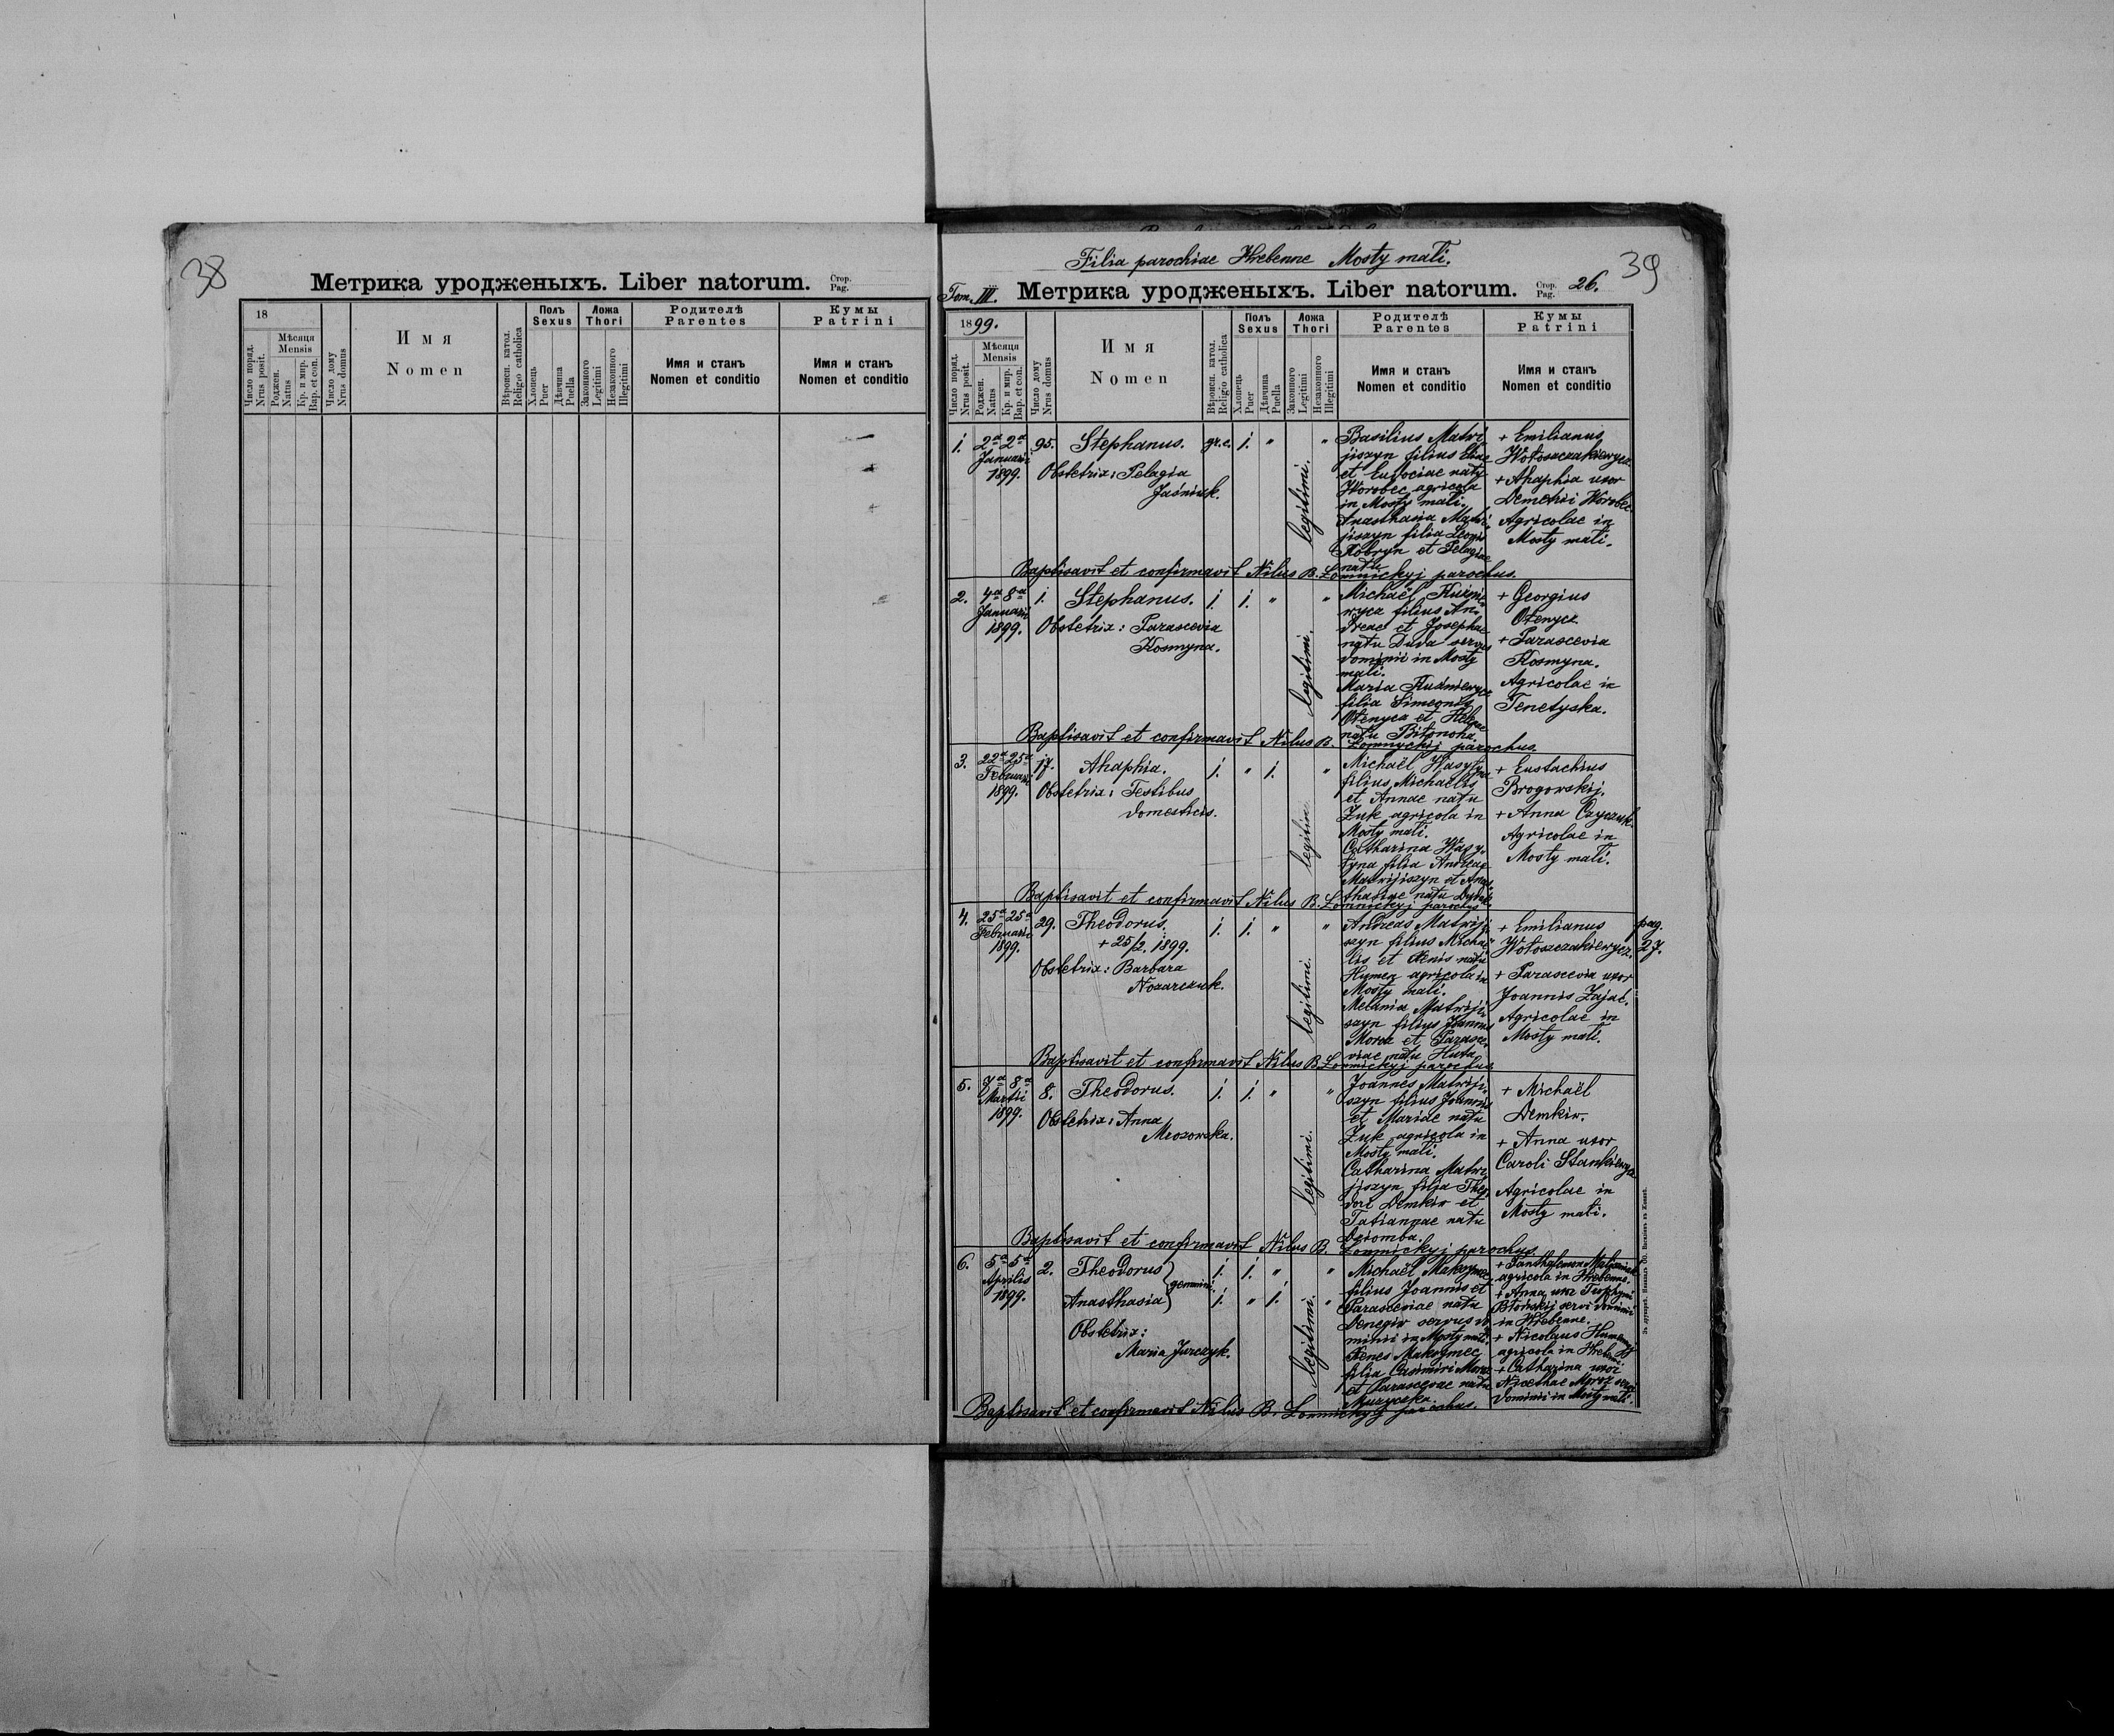 38
Метрика уродженыхъ. Liber natorum. Стор. Pag.
18
Число поряд. Nrus posit.
Мѣсяця Mensis
Роджен. Natus
Кр. и мир. Bap. et con.
Число дому Nrus domus
Имя
Nomen
Вѣроисп. катол. Religio catholica
Полъ Sexus
Хлопець Puer
Дѣвчина Puella
Ложа Thori
Законного Legitimi
Незаконного Illegitimi
Родителѣ
Parentes
Имя и станъ
Nomen et conditio
Кумы
Patrini
Имя и станъ
Nomen et conditio
Filia parochiae Hrebenne Mosty mali.
39
Tom. III. Метрика уродженыхъ. Liber natorum. Стор. Pag. 26.
1899.
Число поряд. Nrus posit.
Мѣсяця Mensis
Роджен. Natus
Кр. и мир. Bap. et con.
Число дому Nrus domus
Имя
Nomen
Вѣроисп. катол. Religio catholica
Полъ Sexus
Хлопець Puer
Дѣвчина Puella
Ложа Thori
Законного Legitimi
Незаконного Illegitimi
Родителѣ
Parentes
Имя и станъ
Nomen et conditio
Кумы
Patrini
Имя и станъ
Nomen et conditio
1. 2ª 2ª 95. Stephanus. gr.c. 1. "  "
Januarii
1899.
Obstetrix: Pelagia
Jaśniuk.
legitimi.
Basilius Matwi
jiszyn filius Eliae
et Eudociae natu
Worobec agricola
in Mosty mali.
Anasthasia Matwi
jiszyn filia Leonis
Kobryn et Pelagiae
natu
+ Emilianus
Wołoszczakiewycz.
+ Ahaphia uxor
Demetrii Worobec
Agricolae in
Mosty mali.
Baptisavit et confirmavit Nilus B. Łomnickyj parochus.
2. 7ª 8ª 1. Stephanus. 1. 1. "  "
Januarii
1899.
Obstetrix: Parascevia
Kosmyna.
legitimi.
Michaël
filius An-
dreae et Josephae
natu Duda servus
dominii in Mosty
mali.
Maria
filia Simeonis
Ołenycz et Helenae
natu
+ Georgius
Ołenycz
+ Parascevia
Kosmyna.
Agricolae in
Tenetyska.
Baptisavit et confirmavit Nilus B. Łomnyckij parochus.
3. 22ª 25ª 17. Ahaphia. 1. " 1. "
Februarii
1899.
Obstetrix: Testibus
domesticis.
legitimi
Michaël Wasyłyna
filius Michaëlis
et Annae natu
Żuk agricola in
Mosty mali.
Catharina Wasy-
łyna filia Andreae
Matwijiszyn et Anas-
thasiae natu
+ Eustachius
Brogowskij.
+ Anna
Agricolae in
Mosty mali.
Baptisavit et confirmavit Nilus B. Łomnickyj parochus
4. 25ª 25ª 29. Theodorus. 1. 1. "  "
Februarii
1899.
+ 25/2. 1899.
Obstetrix: Barbara
Nozarczuk.
legitimi.
Andreas Matwiji-
szyn filius Michaë-
lis et Xenis natu
Humen agricola in
Mosty mali.
Melania Matwiji-
szyn filius Joannis
Moroz et Parasce-
viae natu Huta
+ Emilianus
Wołoszczakiewycz.
+ Parascevia uxor
Joannis Zając.
Agricolae in
Mosty mali.
pag.
27.
Baptisavit et confirmavit Nilus B. Łomnickyj parochus
5. 7ª 8ª 8. Theodorus. 1. 1. "  "
Martii
1899.
Obstetrix: Anna
Mrozowska.
legitimi.
Joannes Matwiji-
szyn filius Joannis
et Mariae natu
Żuk agricola in
Mosty mali.
Catharina Matwi
jiszyn filia Theo-
dori Demkiw et
Tatiannae natu
Dziomba.
+ Michaël
Demkiw.
+ Anna uxor
Caroli Stankiewycz
Agricolae in
Mosty mali.
Baptisavit et confirmavit Nilus B. Łomnickyj parochus.
6. 5ª 5ª 2. Theodorus 1. 1. "  "
Aprilis
1899.
gemini.
Anasthasia 1. " 1. "
Obstetrix:
Maria Jurczyk.
legitimi.
Michaël Maksymec
filius Joannis et
Parasceviae natu
Denegiw servus do-
minii in Mosty mali.
Xenes Maksymec
filia Casimiri Moroz
et Parasceviae natu
Muzyczka.
+ Panthalemon
agricola in Hrebenne.
+ Anna uxor
Błońskij servi dominii
in Hrebenne.
+ Nicolaus
agricola in Hrebenne
+ Catharina uxor
Nicethae Mroz servi
dominii in Mosty mali.
Baptisavit et confirmavit Nilus B. Łomnickyj parochus.